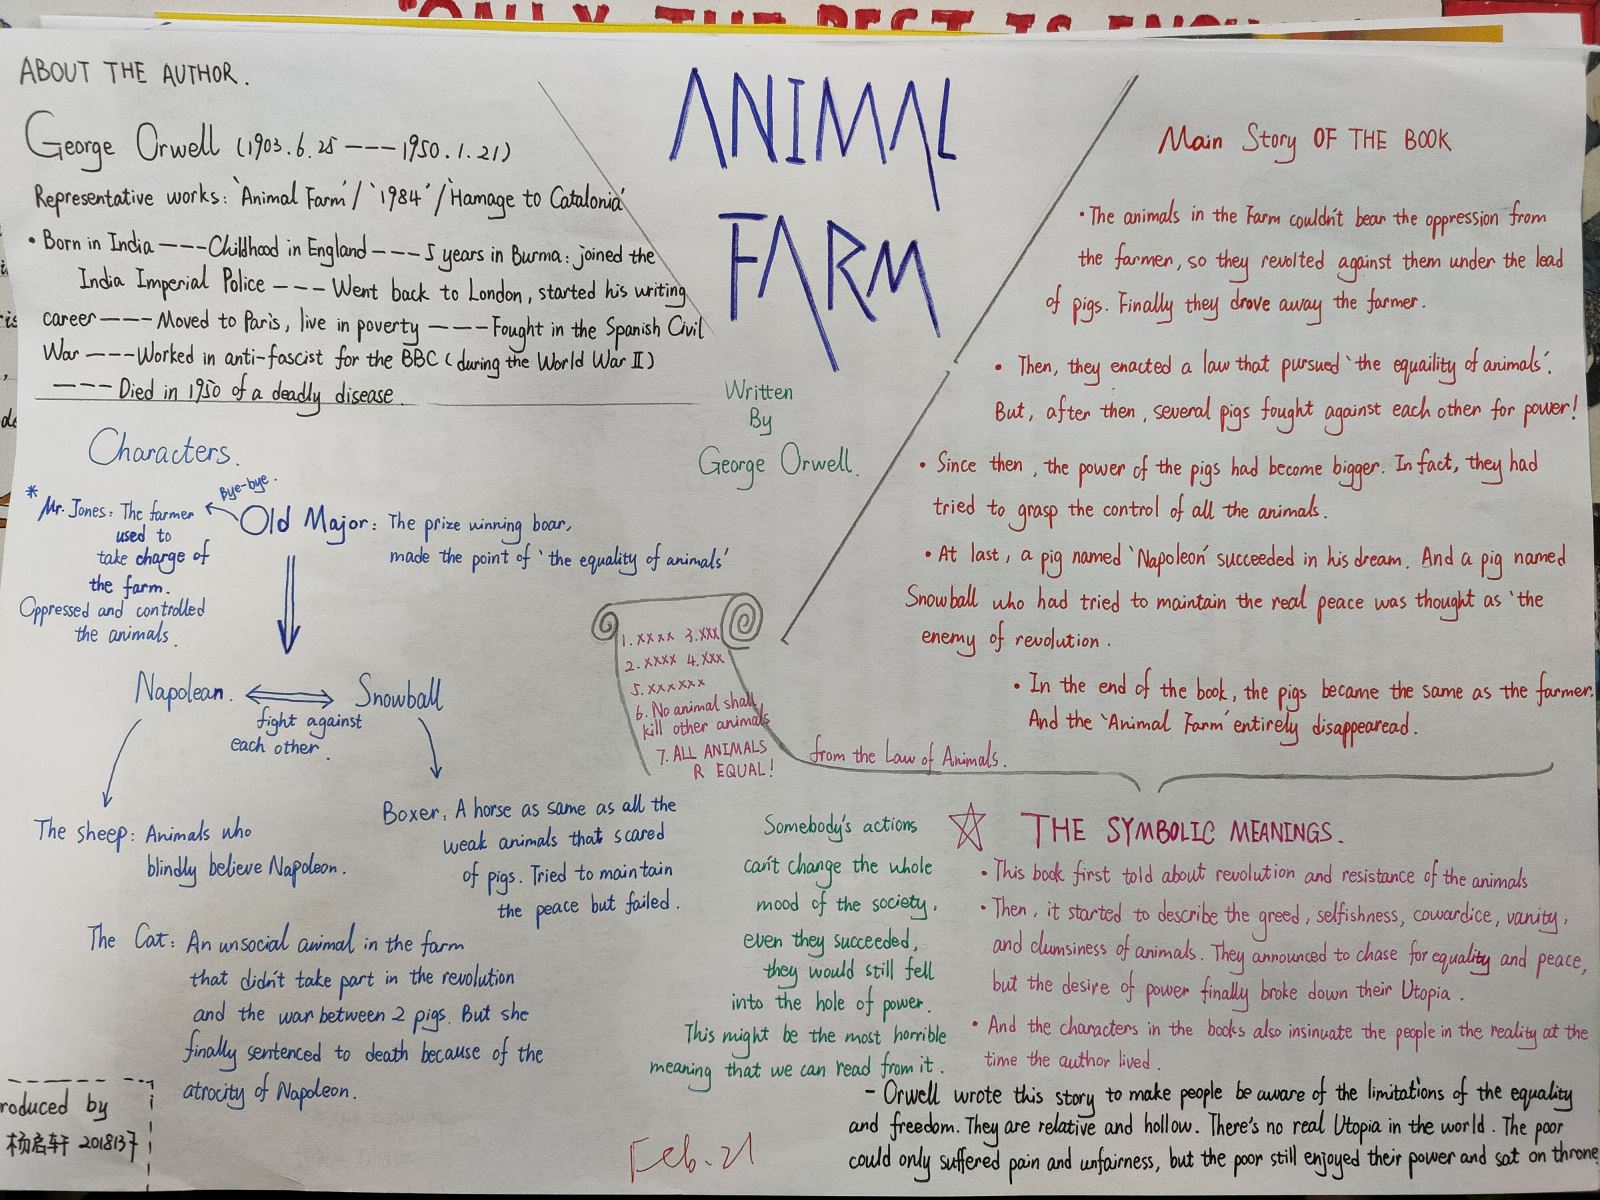 "ONLY THE BEST IS ENOU
ABOUT THE AUTHOR.
George Orwell (1903.6.25 --- 1950.1.21)
Representative works: 'Animal Farm' / '1984' / 'Hamage to Catalonia'
• Born in India --- Childhood in England --- 5 years in Burma: joined the
India Imperial Police --- Went back to London, started his writing
career --- Moved to Paris, live in poverty --- Fought in the Spanish Civil
War --- Worked in anti-fascist for the BBC (during the World War II)
--- Died in 1950 of a deadly disease
ANIMAL
FARM
Written
By
George Orwell.
Main Story OF THE BOOK
• The animals in the Farm couldn't bear the oppression from
the farmer, so they revolted against them under the lead
of pigs. Finally they drove away the farmer.
• Then, they enacted a law that pursued 'the equaility of animals'.
But, after then, several pigs fought against each other for power!
• Since then, the power of the pigs had become bigger. In fact, they had
tried to grasp the control of all the animals.
• At last, a pig named 'Napoleon' succeeded in his dream. And a pig named
Snowball who had tried to maintain the real peace was thought as 'the
enemy of revolution.
• In the end of the book, the pigs became the same as the farmer.
And the 'Animal Farm' entirely disappearead.
Characters.
* Mr. Jones: The farmer
used to
take charge of
the farm.
Oppressed and controlled
the animals.
Bye-bye.
Old Major: The prize winning boar,
made the point of 'the equality of animals'
Napolean.
Snowball
fight against
each other.
The sheep: Animals who
blindly believe Napoleon.
Boxer: A horse as same as all the
weak animals that scared
of pigs. Tried to maintain
the peace but failed.
The Cat: An unsocial animal in the farm
that didn't take part in the revolution
and the war between 2 pigs. But she
finally sentenced to death because of the
atrocity of Napoleon.
1. xxxx 3. xxx
2. xxxx 4. xxx
5. xxxxxx
6. No animal shall
kill other animals
7. ALL ANIMALS
R EQUAL!
from the Law of Animals.
Somebody's actions
can't change the whole
mood of the society,
even they succeeded,
they would still fell
into the hole of power.
This might be the most horrible
meaning that we can read from it.
THE SYMBOLIC MEANINGS.
• This book first told about revolution and resistance of the animals
• Then, it started to describe the greed, selfishness, cowardice, vanity,
and clumsiness of animals. They announced to chase for equality and peace,
but the desire of power finally broke down their Utopia.
• And the characters in the books also insinuate the people in the reality at the
time the author lived.
- Orwell wrote this story to make people be aware of the limitations of the equality
and freedom. They are relative and hollow. There's no real Utopia in the world. The poor
could only suffered pain and unfairness, but the poor still enjoyed their power and sat on throne
roduced by
杨启轩 201813子
Feb. 21